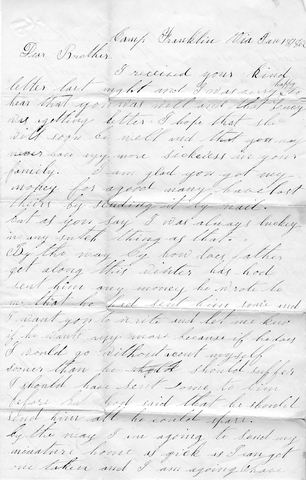 Camp Franklin Via Jan 19th 1862
Dear Brother
I received your kind
letter last night and I was sorry happy to
hear that you was well and that
was getting better I hope that she
will soon be well and that you may
never have any more sickness in your
family. I am glad you got my
money for a good many have lost
theirs by sending it by mail.
but as you say I was always luckey
in any sutch thing as that.
By the way by how does father
get along this winter has hod
sent him any money he wrote to
me that he had sent him some and
I want you to write and let me know
if he wants any more because if he does
I would go without cout myself
sooner than he should suffer
I should have sent some to him
before but hod said that he should
send him all he could spare.
by the way I am agoing to send my
minature home as quick as I can get
one taken and I am agoing have